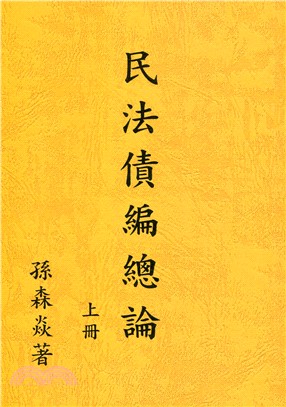 民法債編總論
上冊
孫森焱著
三民